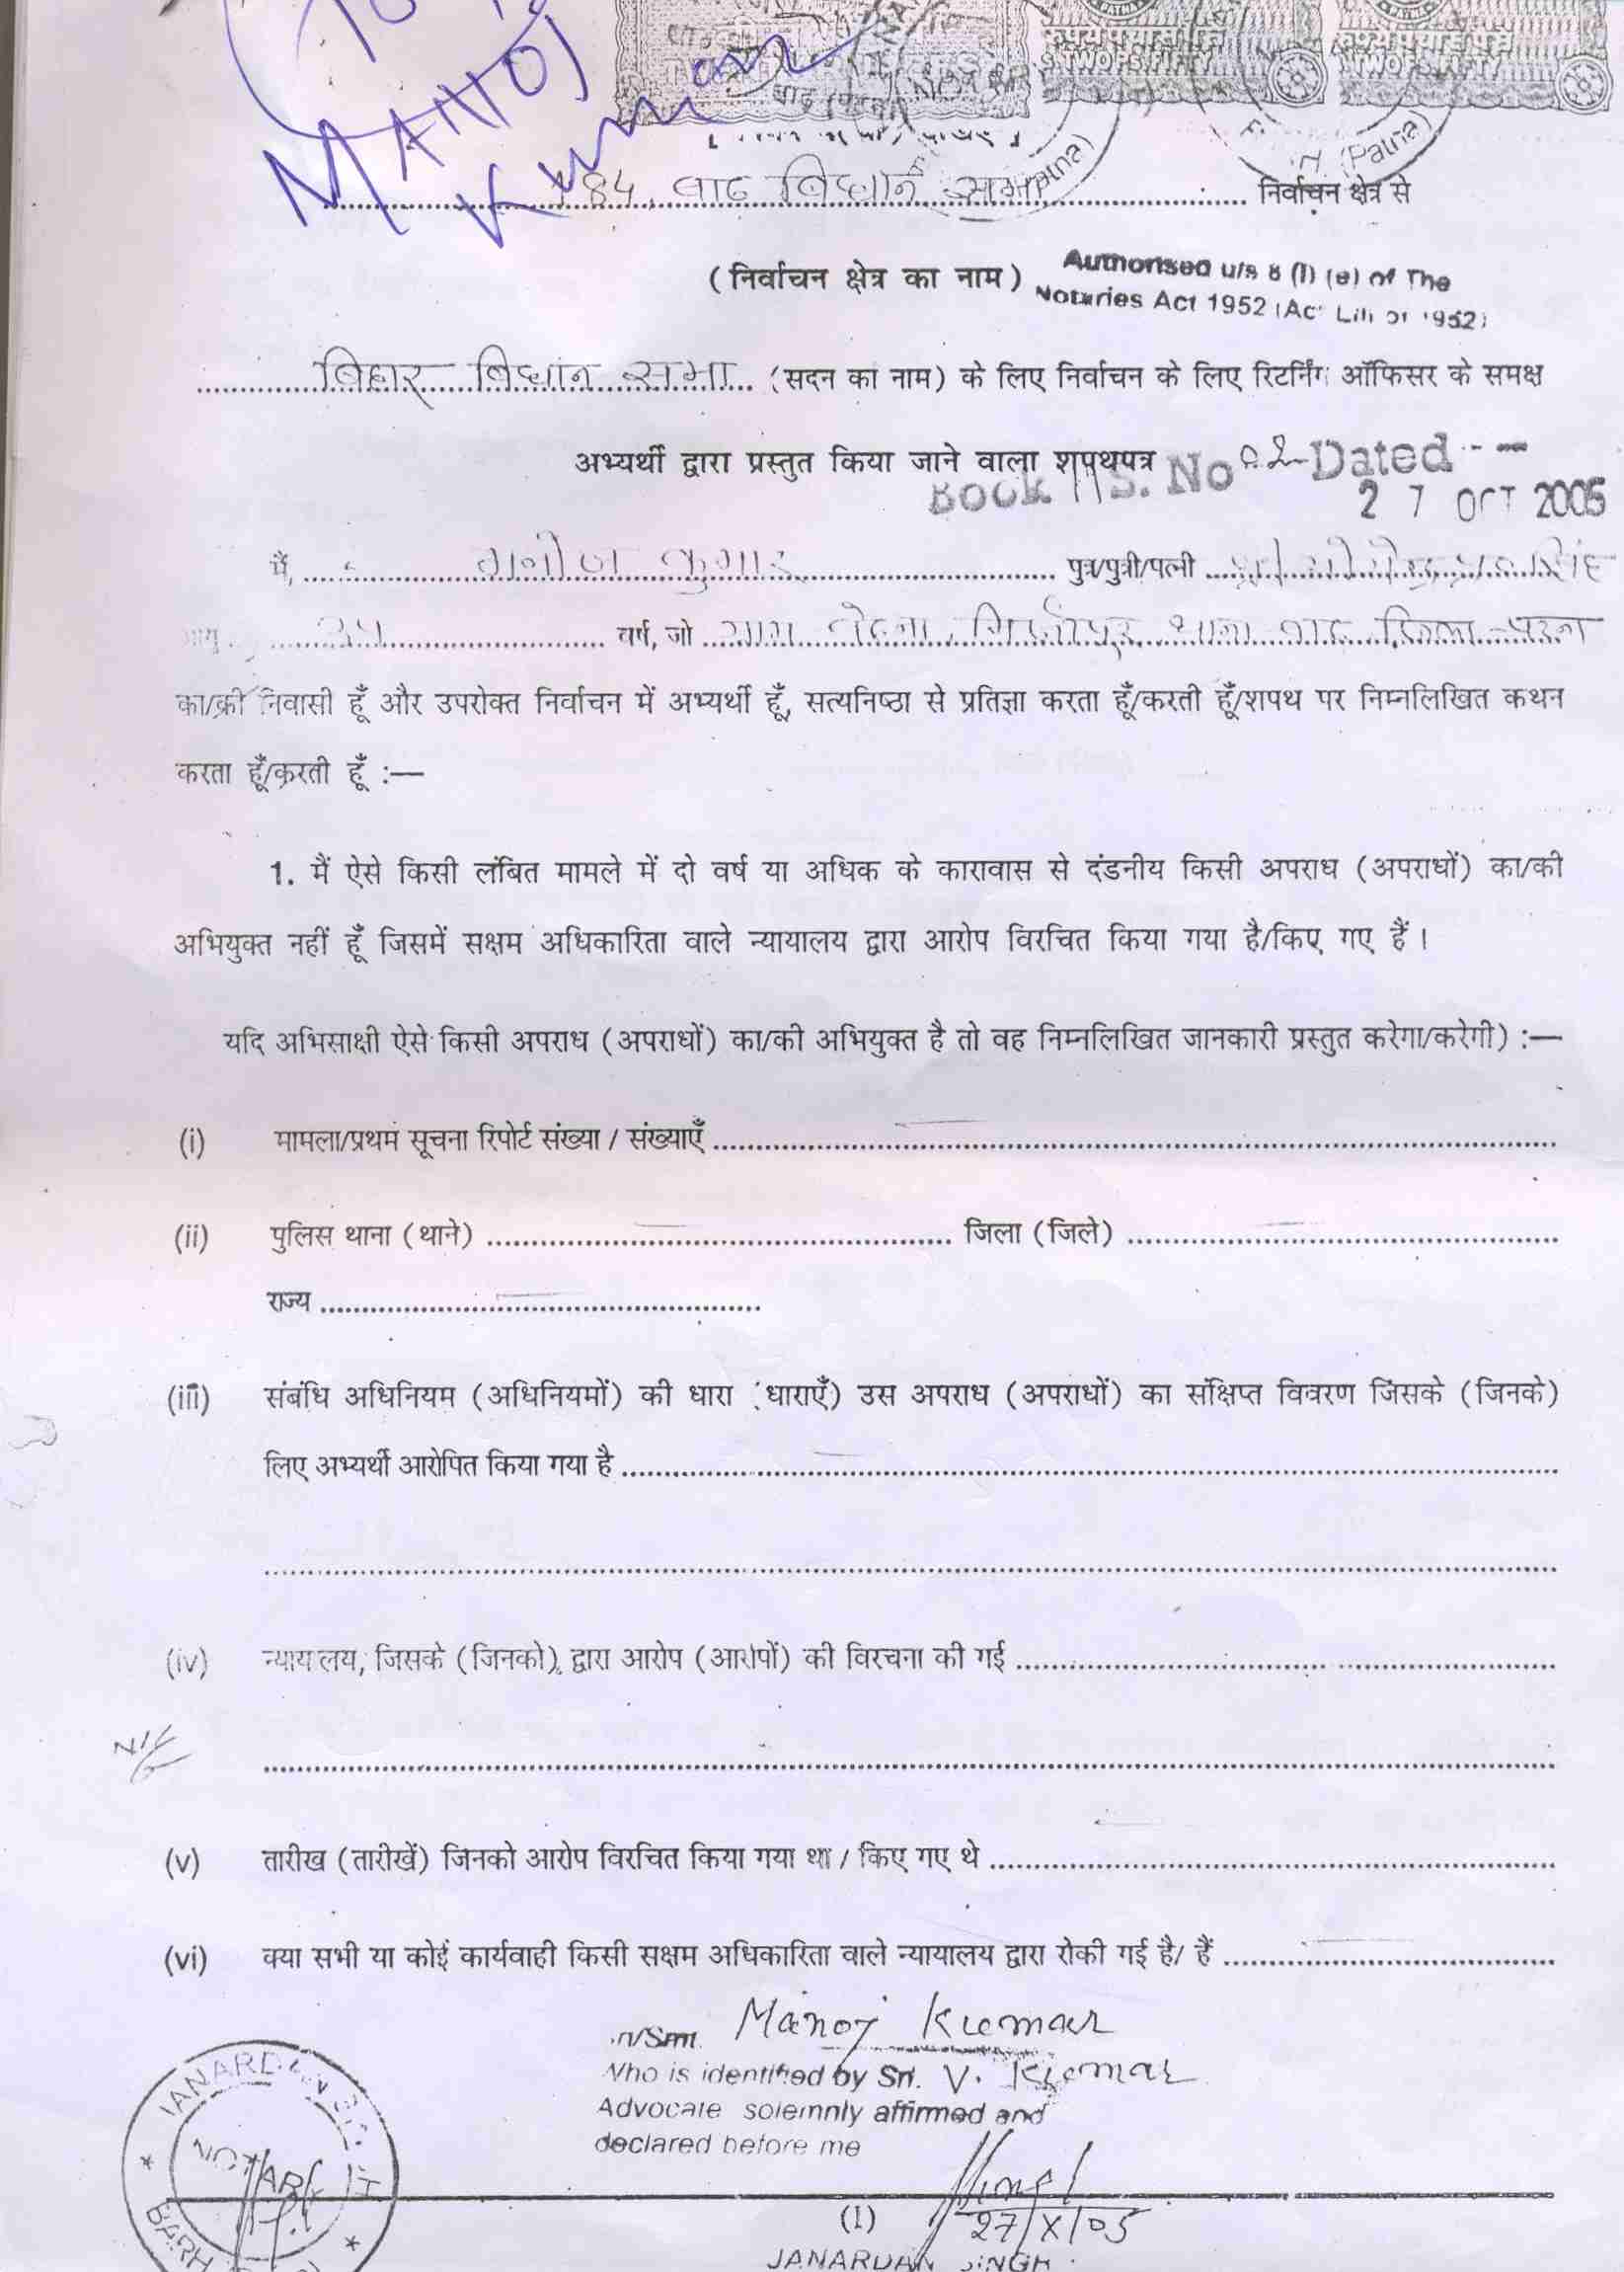 MANOJ
Kumar
रुपये पचास पैसे
रुपये पचास पैसे
TWO RS. FIFTY
TWO RS. FIFTY
(Patna)
(Patna)
184, बाढ़ विधान सभा निर्वाचन क्षेत्र से
(निर्वाचन क्षेत्र का नाम)
Authorised u/s 8 (I) (e) of The
Notaries Act 1952 (Act LIII of 1952)
बिहार विधान सभा (सदन का नाम) के लिए निर्वाचन के लिए रिटर्निंग ऑफिसर के समक्ष
अभ्यर्थी द्वारा प्रस्तुत किया जाने वाला शपथपत्र
Book S. No 02 Dated
27 OCT 2005
मैं, मनोज कुमार पुत्र/पुत्री/पत्नी
आयु वर्ष, जो ग्राम थाना बाढ़ जिला पटना
का/की निवासी हूँ और उपरोक्त निर्वाचन में अभ्यर्थी हूँ, सत्यनिष्ठा से प्रतिज्ञा करता हूँ/करती हूँ/शपथ पर निम्नलिखित कथन
करता हूँ/करती हूँ :—
1. मैं ऐसे किसी लंबित मामले में दो वर्ष या अधिक के कारावास से दंडनीय किसी अपराध (अपराधों) का/की
अभियुक्त नहीं हूँ जिसमें सक्षम अधिकारिता वाले न्यायालय द्वारा आरोप विरचित किया गया है/किए गए हैं ।
यदि अभिसाक्षी ऐसे किसी अपराध (अपराधों) का/की अभियुक्त है तो वह निम्नलिखित जानकारी प्रस्तुत करेगा/करेगी) :—
(i) मामला/प्रथम सूचना रिपोर्ट संख्या / संख्याएँ
(ii) पुलिस थाना (थाने) जिला (जिले)
राज्य
(iii) संबंधि अधिनियम (अधिनियमों) की धारा (धाराएँ) उस अपराध (अपराधों) का संक्षिप्त विवरण जिसके (जिनके)
लिए अभ्यर्थी आरोपित किया गया है
(iv) न्यायालय, जिसके (जिनको) द्वारा आरोप (आरोपों) की विरचना की गई
(v) तारीख (तारीखें) जिनको आरोप विरचित किया गया था / किए गए थे
(vi) क्या सभी या कोई कार्यवाही किसी सक्षम अधिकारिता वाले न्यायालय द्वारा रोकी गई है/ हैं
Manoj Kumar
Who is identified by Sri. V. Kumar
Advocate solemnly affirmed and
declared before me
NOTARY
BARH
(1)
27/X/05
JANARDAN SINGH